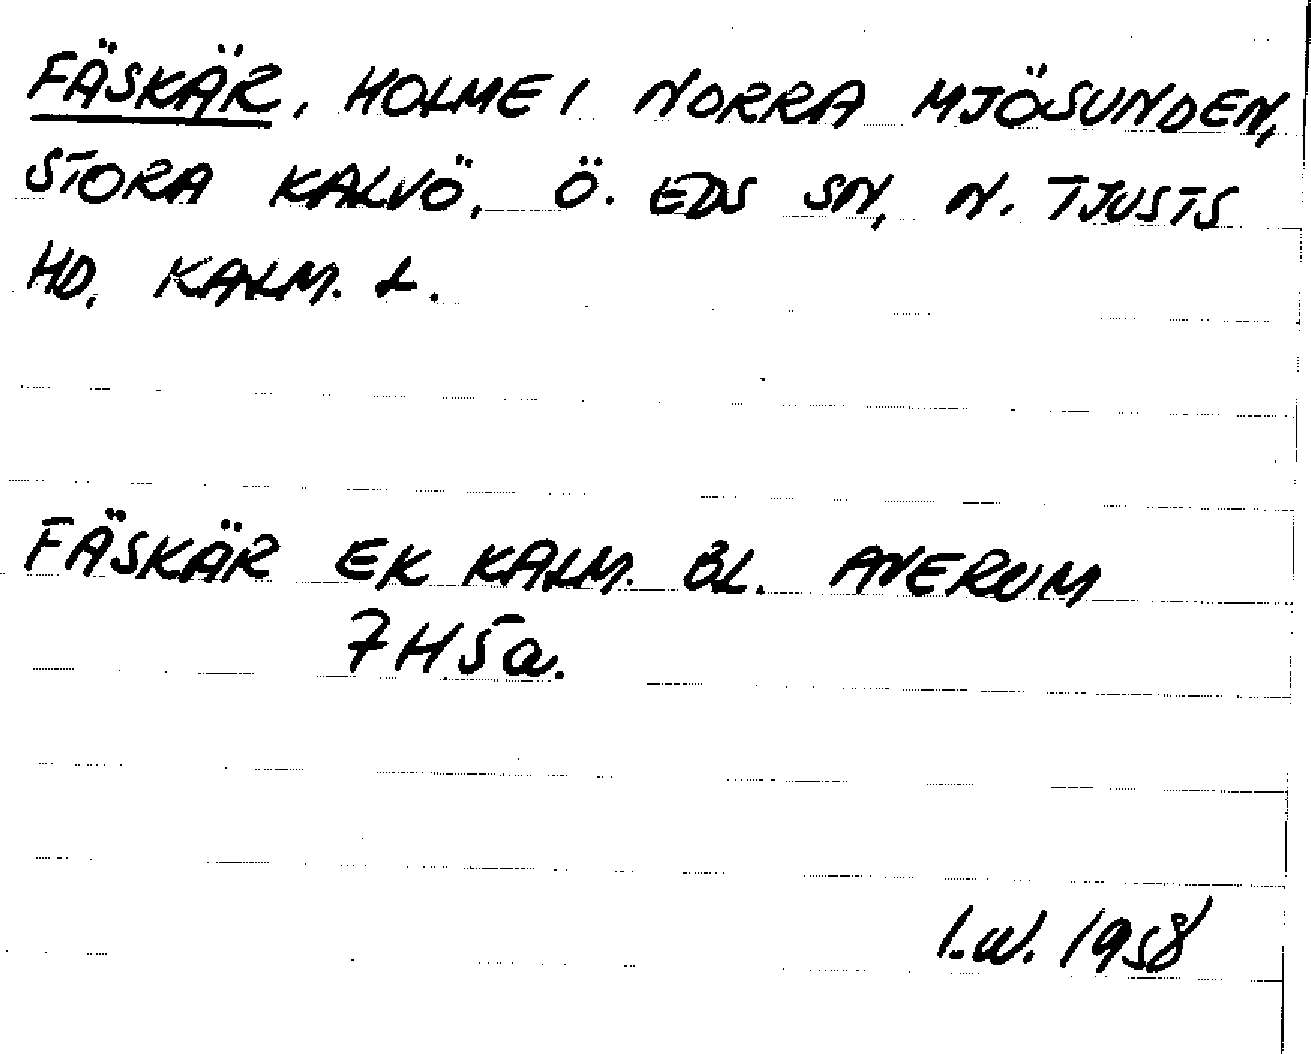 FÄSKÄR, HOLME I NORRA MJÖSUNDEN,
STORA KALVÖ, Ö. EDS SN, N. TJUSTS
HD. KALM. L.
FÄSKÄR EK KALM. BL. AVERUM
7H5a.
I.W. 1958